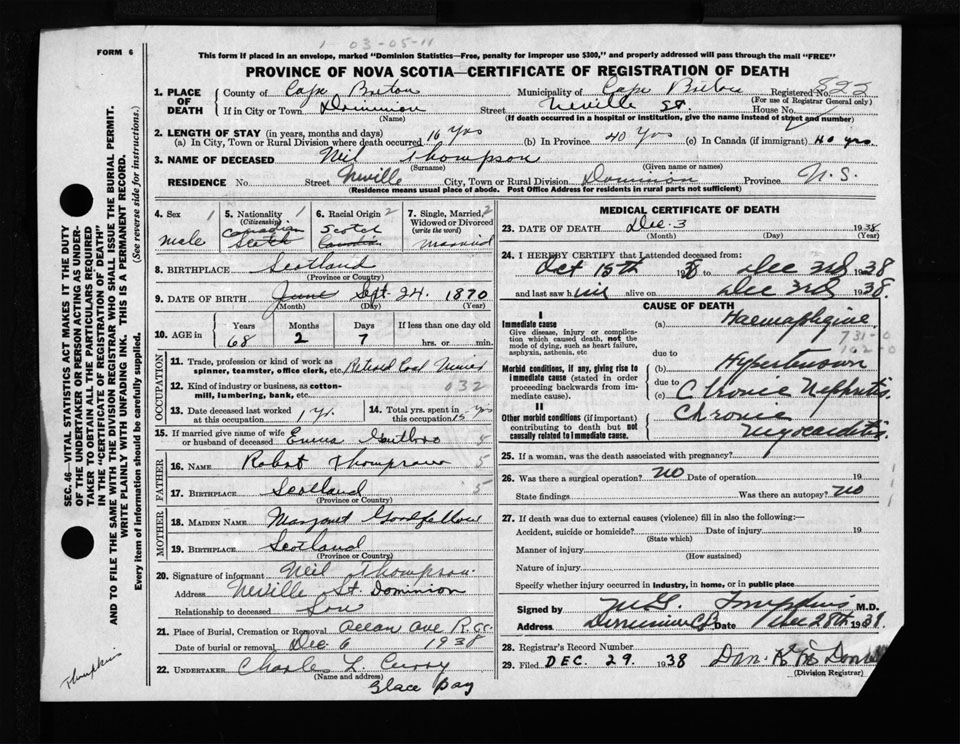 FORM 6
1 03-05-11
This form if placed in an envelope, marked "Dominion Statistics—Free, penalty for improper use $300," and properly addressed will pass through the mail "FREE"
PROVINCE OF NOVA SCOTIA—CERTIFICATE OF REGISTRATION OF DEATH
1. PLACE OF DEATH
County of Cape Breton Municipality of Cape Breton Registered No. 822
(For use of Registrar General only)
If in City or Town Dominion Street Neville St. House No.
(Name) (If death occurred in a hospital or institution, give the name instead of street and number)
2. LENGTH OF STAY (in years, months and days)
(a) In City, Town or Rural Division where death occurred 16 Yrs (b) In Province 40 Yrs (c) In Canada (if immigrant) 40 yrs.
3. NAME OF DECEASED Neil Thompson
(Surname) (Given name or names)
RESIDENCE No. Street Neville City, Town or Rural Division Dominion Province N.S.
(Residence means usual place of abode. Post Office Address for residents in rural parts not sufficient)
4. Sex 1 male
5. Nationality 1 (Citizenship) Canadian Scotch
6. Racial Origin 2 Scotch Canadian
7. Single, Married, 2 Widowed or Divorced (write the word) married
8. BIRTHPLACE Scotland
(Province or Country)
9. DATE OF BIRTH June Sept. 24. 1870
(Month) (Day) (Year)
10. AGE in Years 68 Months 2 Days 7 If less than one day old hrs. or min.
OCCUPATION
11. Trade, profession or kind of work as spinner, teamster, office clerk, etc. Retired Coal Miner
12. Kind of industry or business, as cotton-mill, lumbering, bank, etc. 032
13. Date deceased last worked at this occupation 1 yr.
14. Total yrs. spent in this occupation 15 yrs
15. If married give name of wife or husband of deceased Emma 4
FATHER
16. NAME Robert Thompson 5
17. BIRTHPLACE Scotland 5
(Province or Country)
MOTHER
18. MAIDEN NAME Margaret Goodfellow
19. BIRTHPLACE Scotland
(Province or Country)
20. Signature of informant Neil Thompson.
Address Neville St. Dominion
Relationship to deceased Son
21. Place of Burial, Cremation or Removal Ocean Ave R.
Date of burial or removal Dec 6 1938
22. UNDERTAKER Charles L. Curry
(Name and address)
Glace Bay
MEDICAL CERTIFICATE OF DEATH
23. DATE OF DEATH Dec. 3 1938
(Month) (Day) (Year)
24. I HEREBY CERTIFY that I attended deceased from:
Oct 15th 1938 to Dec 3rd 1938
and last saw him alive on Dec 3rd 1938.
CAUSE OF DEATH
I
Immediate cause
Give disease, injury or complication which caused death, not the mode of dying, such as heart failure, asphyxia, asthenia, etc
(a)
731-0
102-0
due to
Morbid conditions, if any, giving rise to immediate cause (stated in order proceeding backwards from immediate).
(b) Hypertension
due to
(c) Chronic Nephritis
II
Other morbid conditions (if important) contributing to death but not causally related to immediate cause.
Chronic
Myocarditis
25. If a woman, was the death associated with pregnancy?
26. Was there a surgical operation? No Date of operation 19
State findings Was there an autopsy? No
27. If death was due to external causes (violence) fill in also the following:—
Accident, suicide or homicide? Date of injury 19
(State which)
Manner of injury
(How sustained)
Nature of injury
Specify whether injury occurred in industry, in home, or in public place
Signed by M.G. Tompkins M.D.
Address Dominion C.B. Date Dec 28th 1938.
28. Registrar's Record Number
29. Filed DEC. 29. 1938
(Division Registrar)
SEC. 46—VITAL STATISTICS ACT MAKES IT THE DUTY OF THE UNDERTAKER OR PERSON ACTING AS UNDERTAKER TO OBTAIN ALL THE PARTICULARS REQUIRED IN THE "CERTIFICATE OF REGISTRATION OF DEATH" AND TO FILE THE SAME WITH THE DIVISION REGISTRAR WHO SHALL ISSUE THE BURIAL PERMIT.
WRITE PLAINLY WITH UNFADING INK. THIS IS A PERMANENT RECORD.
Every item of information should be carefully supplied. (See reverse side for instructions.)